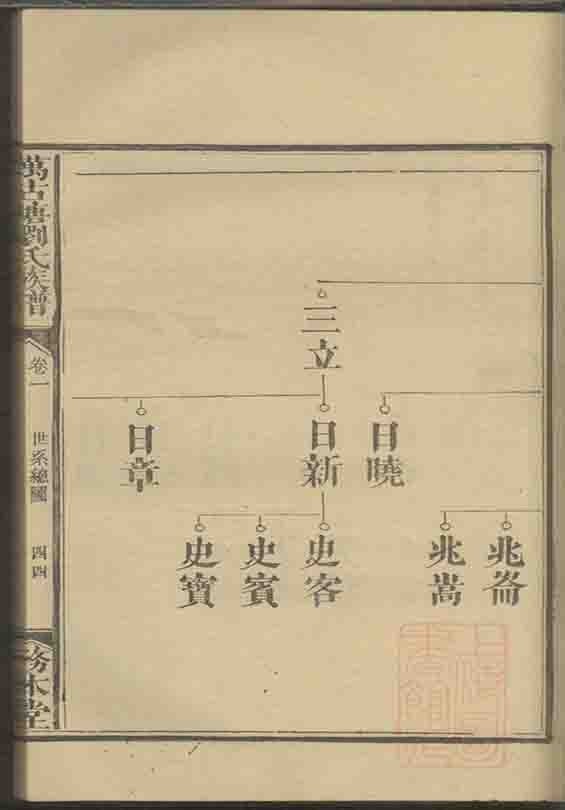 三立
日曉
日新
日章
兆崙
兆嵩
史客
史賓
史寶
萬古塘劉氏族譜
卷一
世系總圖
四四
務本堂